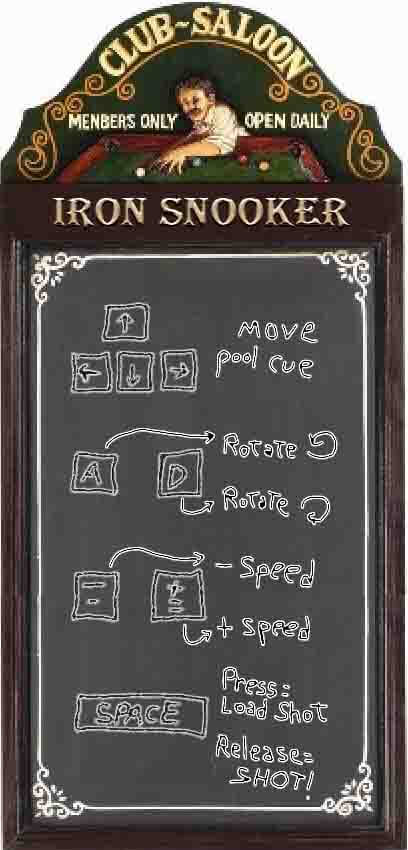 CLUB~SALOON
MENBERS ONLY OPEN DAILY
IRON SNOOKER
↑
← ↓ →
Move
pool cue
A
D
Rotate
Rotate
-
+
=
- Speed
+ Speed
SPACE
Press:
Load Shot
Release=
SHOT!